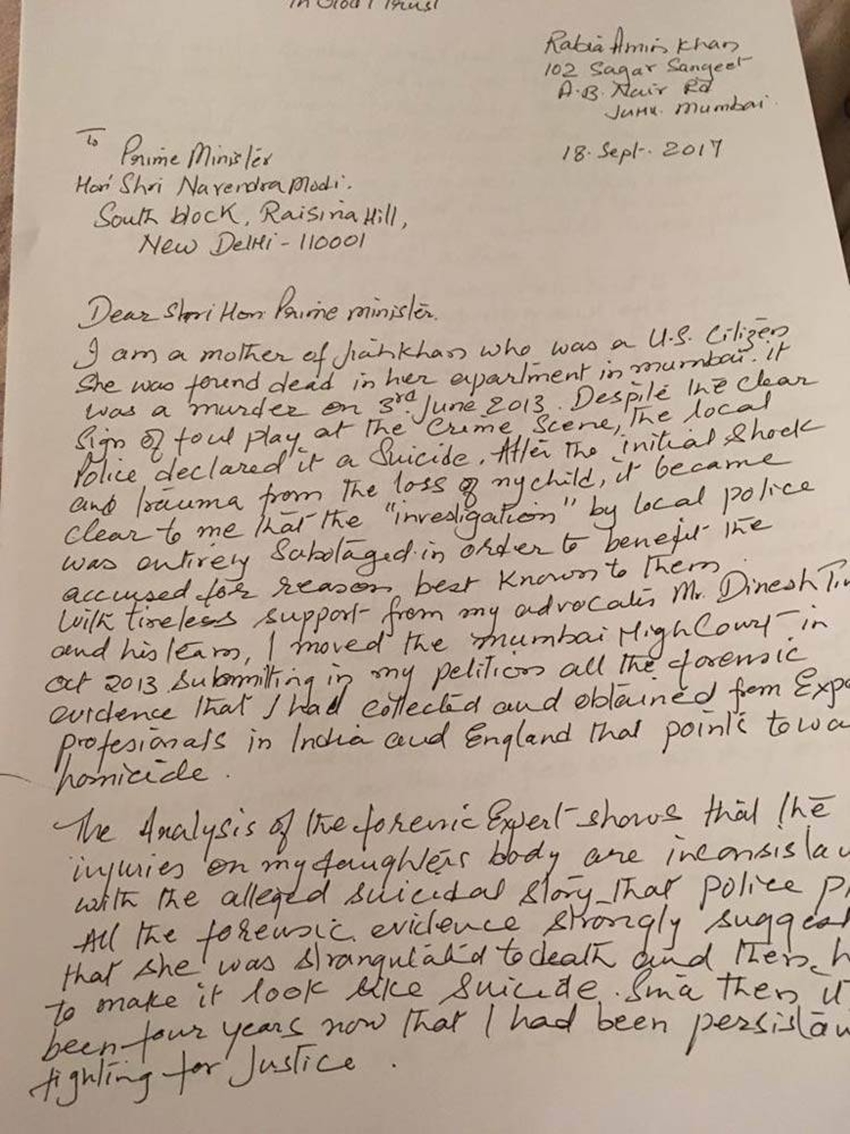 In God I Trust
Rabia Amin Khan
102 Sagar Sangeet
A.B. Nair Rd
Juhu. Mumbai.
18. Sept. 2017
To
Prime Minister
Hon' Shri Narendra Modi.
South block, Raisina Hill,
New Delhi - 110001
Dear Shri Hon Prime minister.
I am a mother of Jiah Khan who was a U.S. Citizen
She was found dead in her apartment in mumbai. it
was a murder on 3rd June 2013. Despite the clear
Sign of foul play at the Crime Scene, the local
Police declared it a Suicide. After the initial shock
and trauma from the loss of my child, it became
clear to me that the "investigation" by local police
was entirely Sabotaged in order to benefit the
accused for reason best known to them.
With tireless support from my advocates Mr. Dinesh
and his team, I moved the mumbai High Court in
Oct 2013 Submitting in my petition all the forensic
evidence that I had collected and obtained from
profesionals in India and England that points
homicide.
The Analysis of the forensic Expert shows that the
injuries on my daughters body are
with the alleged suicidal story that police
All the forensic evidence strongly suggest
that she was strangulated to death and then
to make it look like suicide. then it
been four years now that I had been
fighting for Justice.